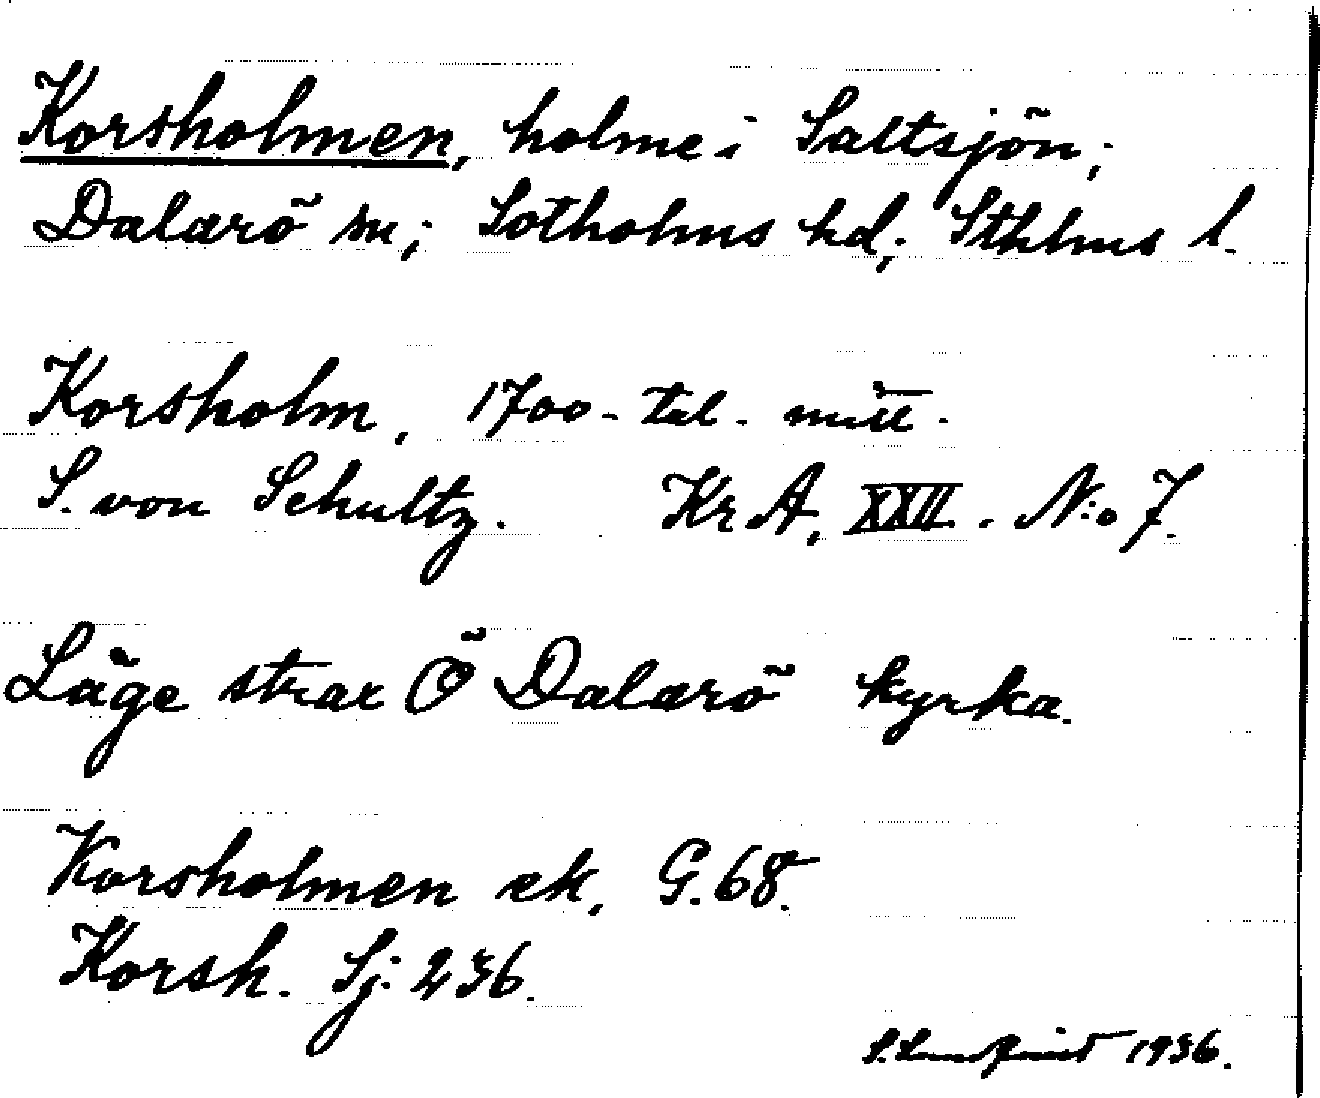 Korsholmen, holme i Saltsjön;
Dalarö sn; Sotholms hd; Sthlms l.
Korsholm, 1700-tal. mitt.
S. von Schultz. Kr A, XXII. N:o 7.
Läge strax Ö Dalarö kyrka.
Korsholmen ek, G. 68.
Korsh. Sj: 236.
1936.